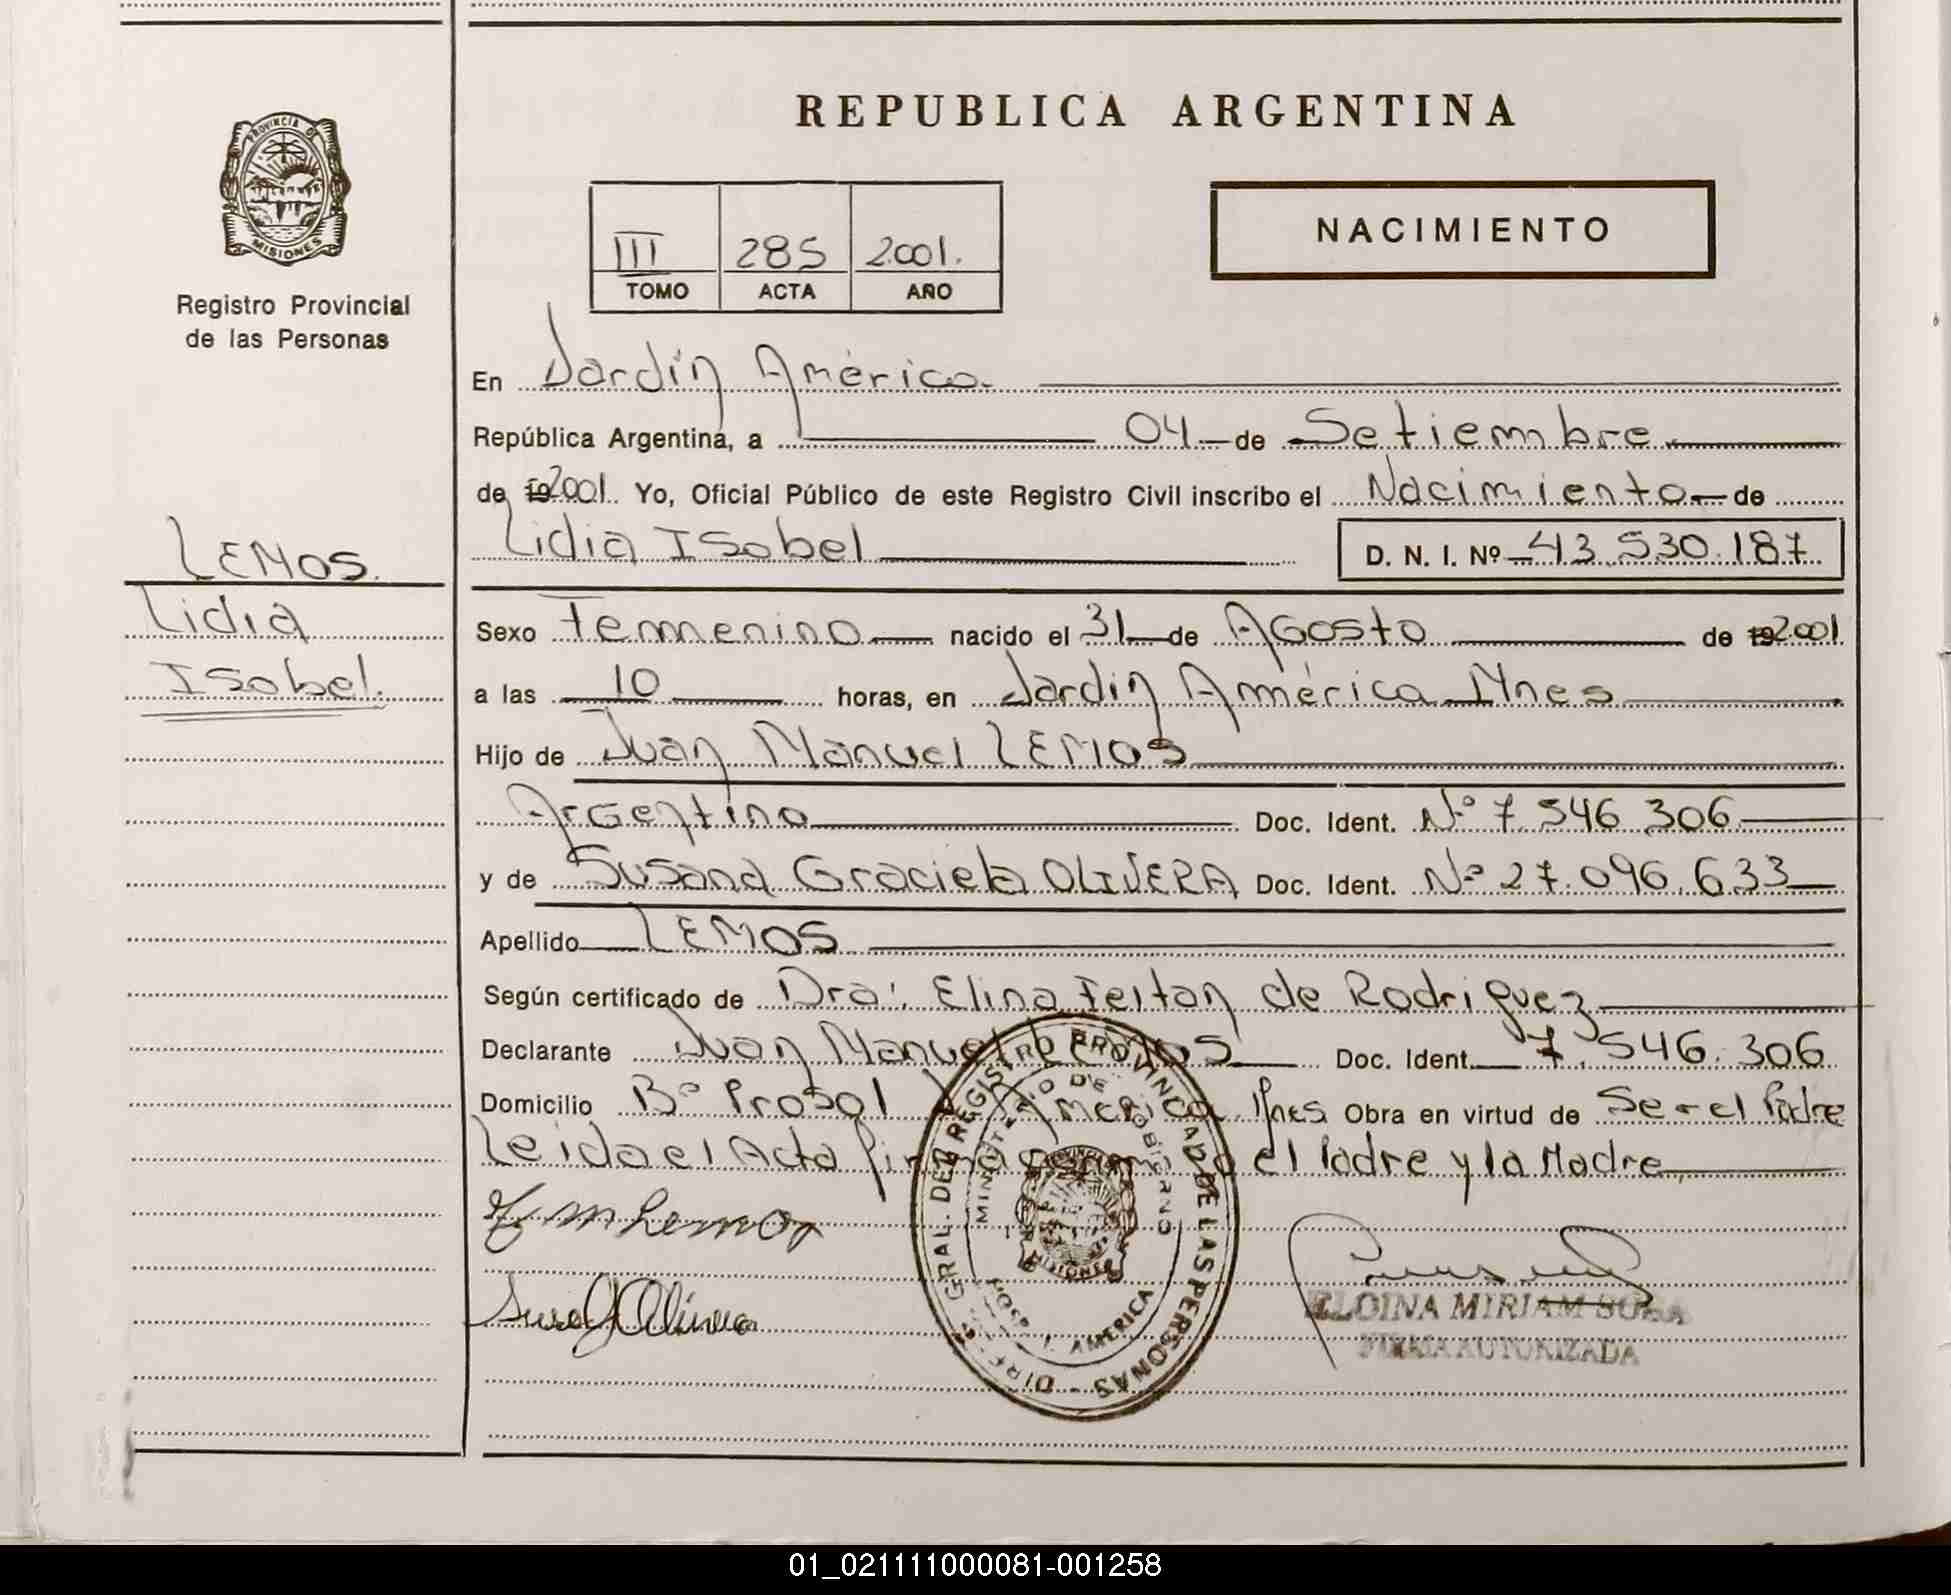 REPUBLICA ARGENTINA
PROVINCIA DE
MISIONES
Registro Provincial
de las Personas
III 285 2.001.
TOMO ACTA AÑO
NACIMIENTO
En Jardín América.
República Argentina, a 04 de Setiembre
de 19 2001. Yo, Oficial Público de este Registro Civil inscribo el Nacimiento de
Lidia Isabel D. N. I. Nº 43.530.187
LEMOS.
Lidia
Isabel.
Sexo Femenino nacido el 31 de Agosto de 19 2.001
a las 10 horas, en Jardín América Mnes
Hijo de Juan Manuel LEMOS
Argentino Doc. Ident. Nº 7.546.306
y de Susana Graciela OLIVERA Doc. Ident. Nº 27.096.633
Apellido LEMOS
Según certificado de Dra. Elina Feltan de Rodriguez
Declarante Juan Manuel Lemos Doc. Ident. 7.546.306
Domicilio Bº Prosol J. América Mnes Obra en virtud de Ser el Padre
Leida el Acta firma conmigo el Padre y la Madre
J M Lemos
Olivera
DIREC. GRAL. DEL REGISTRO PROVINCIAL DE LAS PERSONAS
MINISTERIO DE GOBIERNO
PROVINCIA DE
MISIONES
HOSP. J. AMERICA
ELOINA MIRIAM SOSA
FIRMA AUTORIZADA
01_021111000081-001258